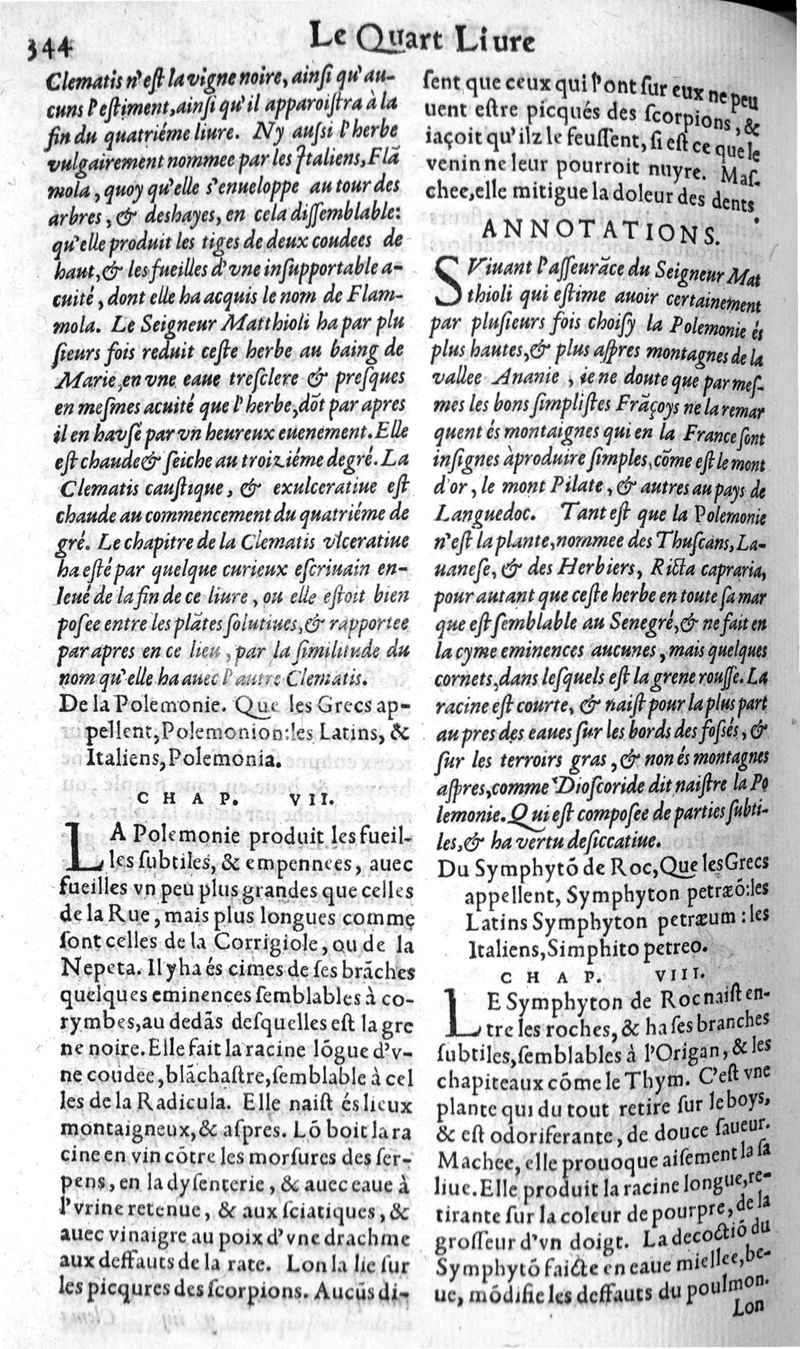 344
Le Quart Liure
Clematis n'eſt la vigne noire, ainſi qu'au-
cuns l'eſtiment, ainſi qu'il apparoiſtra à la
fin du quatriéme liure. Ny auſſi l'herbe
vulgairement nommee par les Italiens, Flã
mola, quoy qu'elle s'enueloppe au tour des
arbres, & deshayes, en cela diſſemblable:
qu'elle produit les tiges de deux coudees de
haut, & les fueilles d'vne inſupportable a-
cuité, dont elle ha acquis le nom de Flam-
mola. Le Seigneur Matthioli ha par plu
ſieurs fois reduit ceſte herbe au baing de
Marie, en vne eaue treſclere & preſques
en meſmes acuité que l'herbe, dõt par apres
il en ha vſé par vn heureux euenement. Elle
eſt chaude & ſeiche au troiziéme degré. La
Clematis cauſtique, & exulceratiue eſt
chaude au commencement du quatriéme de
gré. Le chapitre de la Clematis vlceratiue
ha eſté par quelque curieux eſcriuain en-
leué de la fin de ce liure, ou elle eſtoit bien
poſee entre les plãtes ſolutiues, & rapportee
par apres en ce lieu, par la ſimilitude du
nom qu'elle ha auec l'autre Clematis.
De la Polemonie. Que les Grecs ap-
pellent, Polemonion: les Latins, &
Italiens, Polemonia.
CHAP. VII.
LA Polemonie produit les fueil-
les ſubtiles, & empennees, auec
fueilles vn peu plus grandes que celles
de la Rue, mais plus longues comme
ſont celles de la Corrigiole, ou de la
Nepeta. Il y ha és cimes de ſes brãches
quelques eminences ſemblables à co-
rymbes, au dedãs deſquelles eſt la gre
ne noire. Elle fait la racine lõgue d'v-
ne coudee, blãchaſtre, ſemblable à cel
les de la Radicula. Elle naiſt és lieux
montaigneux, & aſpres. Lõ boit la ra
cine en vin cõtre les morſures des ſer-
pens, en la dyſenterie, & auec eaue à
l'vrine retenue, & aux ſciatiques, &
auec vinaigre au poix d'vne drachme
aux deffauts de la rate. Lon la lie ſur
les picqures des ſcorpions. Aucũs di-
ſent que ceux qui l'ont ſur eux ne peu
uent eſtre picqués des ſcorpions, &
iaçoit qu'ilz le feuſſent, ſi eſt ce que le
venin ne leur pourroit nuyre. Maſ-
chee, elle mitigue la doleur des dents.
ANNOTATIONS.
SViuant l'aſſeurãce du Seigneur Mat
thioli qui eſtime auoir certainement
par pluſieurs fois choiſy la Polemonie és
plus hautes, & plus aſpres montagnes de la
vallee Ananie, ie ne doute que par meſ-
mes les bons ſimpliſtes Frãçoys ne la remar
quent és montaignes qui en la France ſont
inſignes à produire ſimples, cõme eſt le mont
d'or, le mont Pilate, & autres au pays de
Languedoc. Tant eſt que la Polemonie
n'eſt la plante, nommee des Thuſcans, La-
uaneſe, & des Herbiers, Ricta capraria,
pour autant que ceſte herbe en toute ſa mar
que eſt ſemblable au Senegré, & ne fait en
la cyme eminences aucunes, mais quelques
cornets, dans leſquels eſt la grene rouſſe. La
racine eſt courte, & naiſt pour la plus part
au pres des eaues ſur les bords des foſſés, &
ſur les terroirs gras, & non és montagnes
aſpres, comme Dioſcoride dit naiſtre la Po
lemonie. Qui eſt compoſee de parties ſubti-
les, & ha vertu deſiccatiue.
Du Symphytõ de Roc, Que les Grecs
appellent, Symphyton petræõ: les
Latins Symphyton petræum: les
Italiens, Simphito petreo.
CHAP. VIII.
LE Symphyton de Roc naiſt en-
tre les roches, & ha ſes branches
ſubtiles, ſemblables à l'Origan, & les
chapiteaux cõme le Thym. C'eſt vne
plante qui du tout retire ſur le boys,
& eſt odoriferante, de douce ſaueur.
Machee, elle prouoque aiſement la ſa
liue. Elle produit la racine longue, re-
tirante ſur la coleur de pourpre, de la
groſſeur d'vn doigt. La decoctiõ du
Symphytõ faicte en eaue miellee, be-
ue, mõdifie les deffauts du poulmon.
Lon